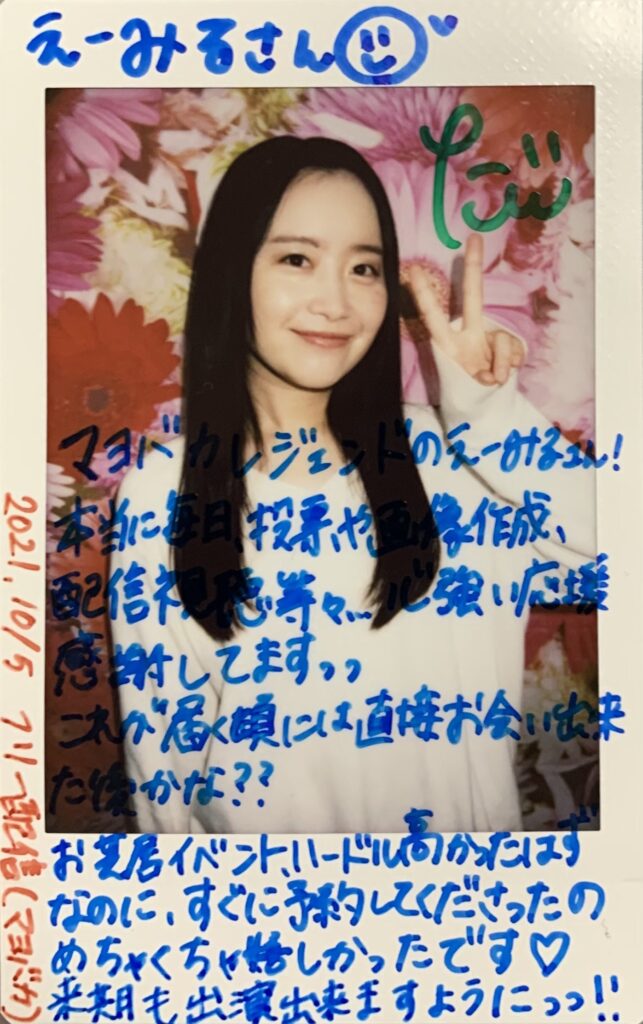 えーみるさん
マヨバカレジェンドのえーみるさん!
本当に毎日、投票や画像作成、
配信視聴等々…心強い応援
感謝してますっっ
これが届く頃には直接お会い出来
た後かな??
お芝居イベント、ハードル高かったはず
なのに、すぐに予約してくださったの
めちゃくちゃ嬉しかったです♡
来期も出演出来ますようにっっ!!
2021.10/5 フリー配信(マヨバカ)